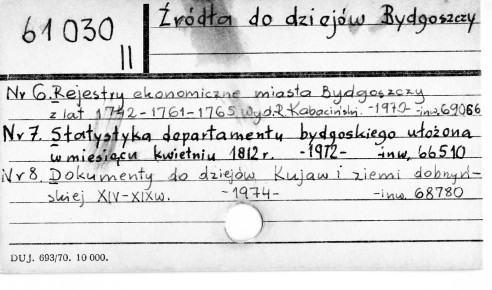 61030
II
Źródła do dziejów Bydgoszczy
Nr 6. Rejestry ekonomiczne miasta Bydgoszczy
z lat 1742-1761-1765 wyd. R. Kabaciński. -1970- inw. 69066
Nr 7. Statystyka departamentu bydgoskiego ułożona
w miesiącu kwietniu 1812 r. -1972- inw. 66510
Nr 8. Dokumenty do dziejów Kujaw i ziemi dobrzyń-
skiej XIV-XIX w. -1974- -inw. 68780
DUJ. 693/70. 10 000.